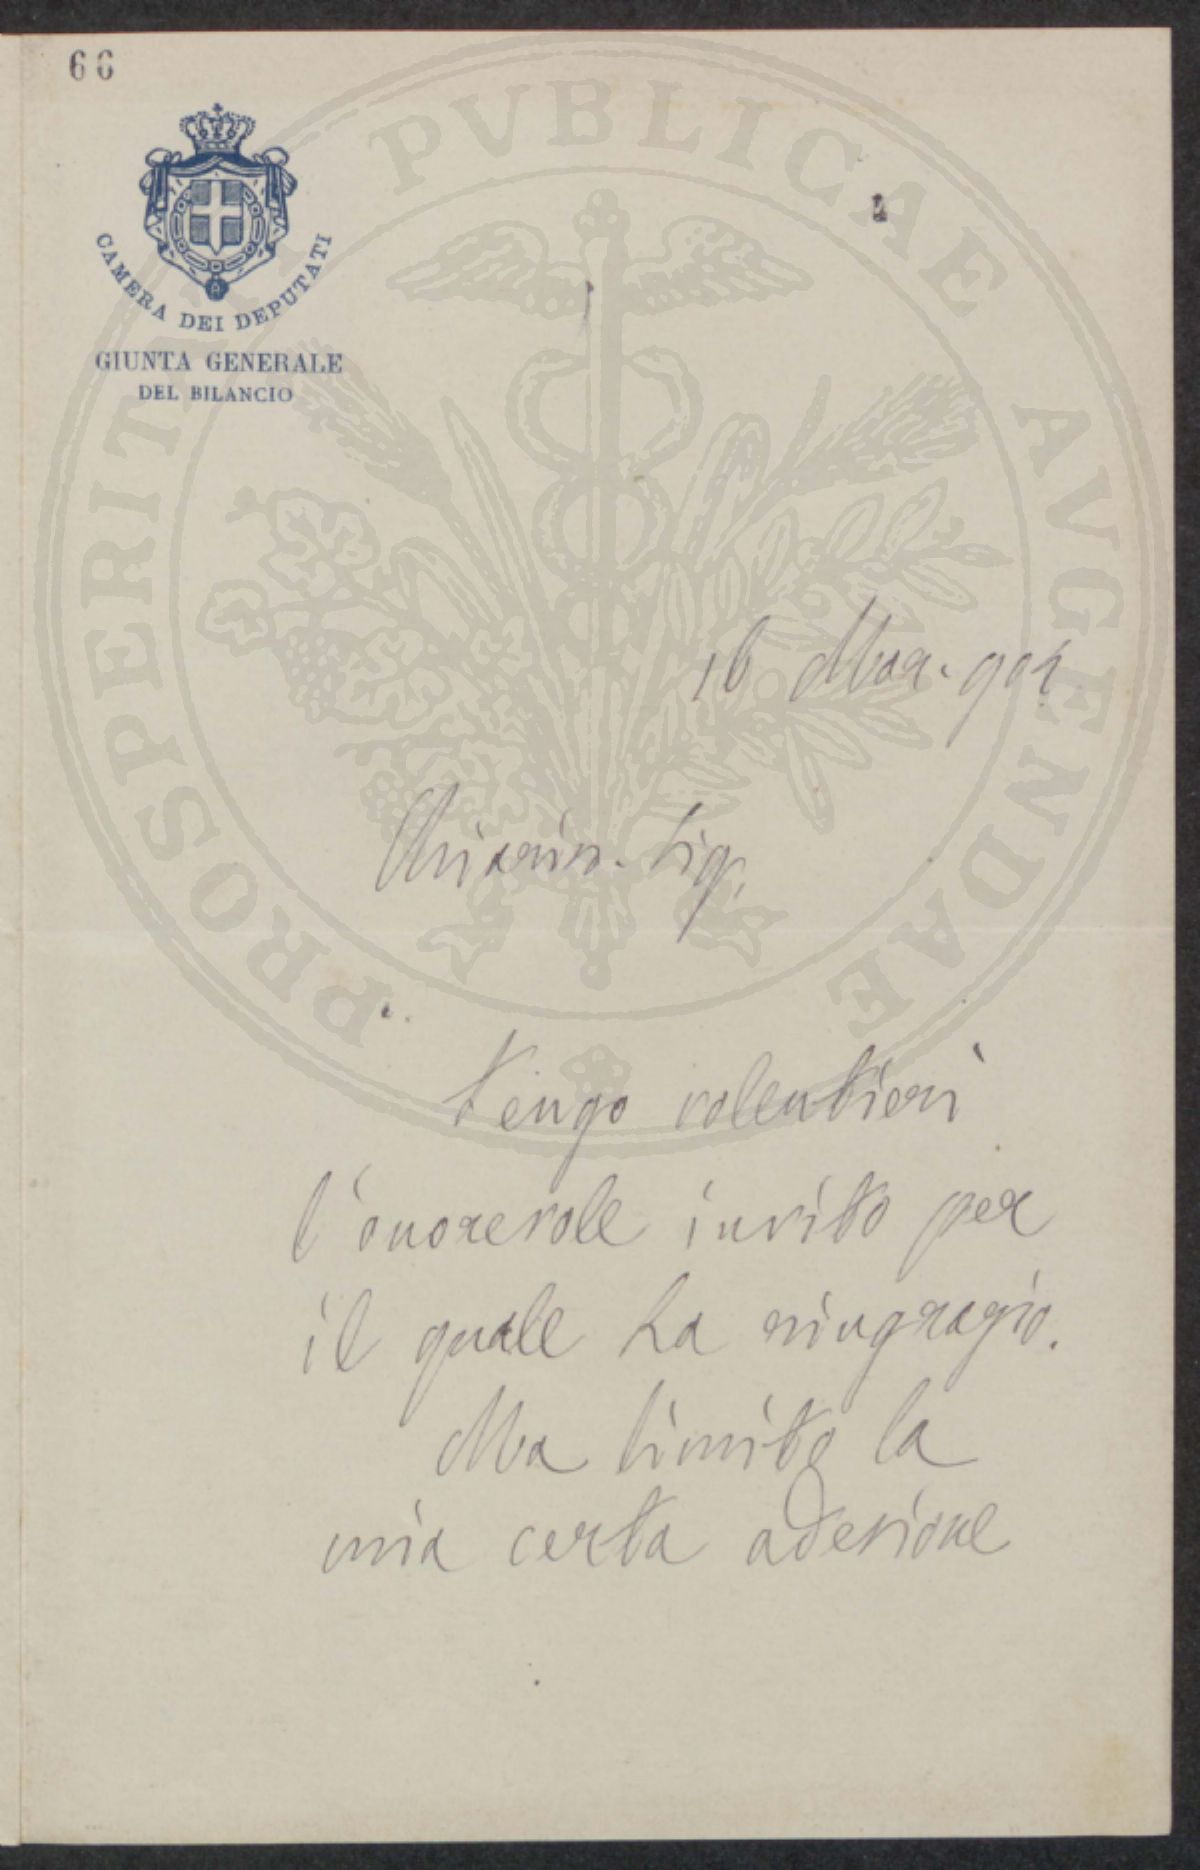 66
CAMERA DEI DEPUTATI
GIUNTA GENERALE
DEL BILANCIO
PROSPERITATI PVBLICAE AVGENDAE
16 Mar. 901
Chiarin. Sig.
Tengo volentieri
l'onorevole invito per
il quale La ringrazio.
Ma limito la
mia certa adesione